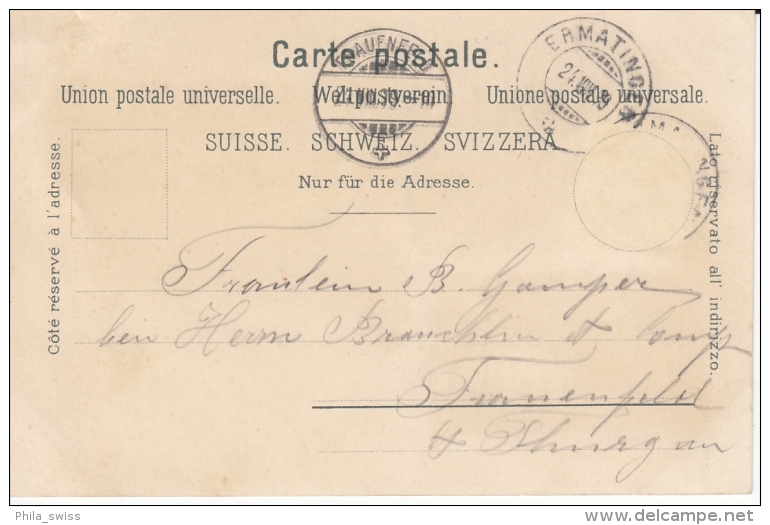 Carte postale.
Union postale universelle. Weltpostverein. Unione postale universale.
SUISSE. SCHWEIZ. SVIZZERA.
Nur für die Adresse.
Côté réservé à l'adresse.
Lato riservato all' indirizzo.
FRAUENFELD
ERMATINGEN
Fräulein B. Gamper
bei Herrn
Frauenfeld
Thurgau
Phila_swiss
delcampe.net